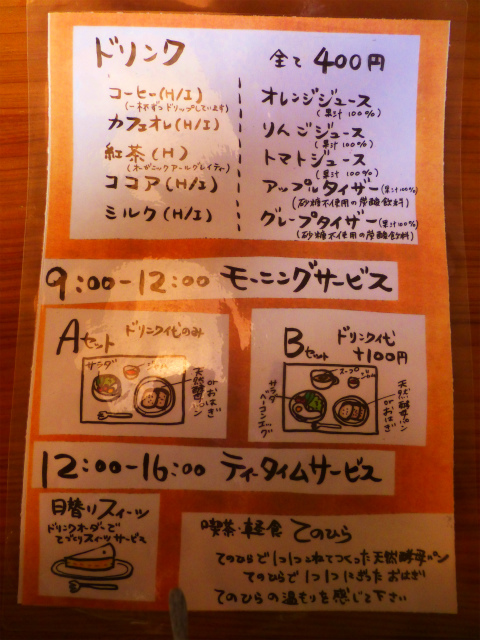 ドリンク 全て 400円
コーヒー(H/I)
(一杯ずつドリップしています)
カフェオレ(H/I)
紅茶(H)
(オーガニックアールグレイティー)
ココア(H/I)
ミルク(H/I)
オレンジジュース
(果汁100%)
りんごジュース
(果汁100%)
トマトジュース
(果汁100%)
アップルタイザー(果汁100%)
(砂糖不使用の炭酸飲料)
グレープタイザー(果汁100%)
(砂糖不使用の炭酸飲料)
9:00-12:00 モーニングサービス
Aセット ドリンク代のみ
サラダ
ジャム
天然酵母パン
orおはぎ
Bセット ドリンク代
+100円
スープ
ジャム
サラダ
ベーコンエッグ
天然酵母パン
orおはぎ
12:00-16:00 ティータイムサービス
日替りスイーツ
ドリンクオーダーで
てづくりスイーツサービス
喫茶・軽食 てのひら
てのひらで1つ1つこねてつくった天然酵母パン
てのひらで1つ1つにぎったおはぎ
てのひらの温もりを感じて下さい